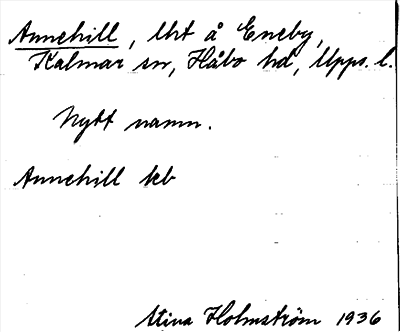 Annehill, lht å Eneby,
Kalmar sn, Håbo hd, Upps. l.
Nytt namn.
Annehill kb
Stina Holmström 1936